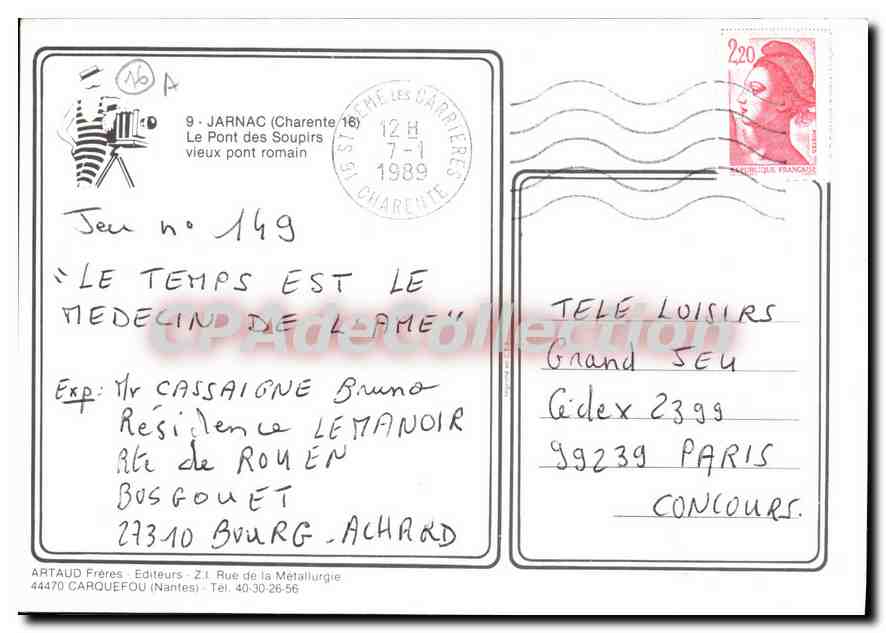 16 A
9 - JARNAC (Charente 16)
Le Pont des Soupirs
vieux pont romain
16 ST-SEME LES CARRIERES
12 H
7-1
1989
CHARENTE
2,20
POSTES
REPUBLIQUE FRANÇAISE
Jeu n° 149
"LE TEMPS EST LE
MEDECIN DE L'AME"
CPAdeCollection
Exp: Mr CASSAIGNE Bruno
Résidence LEMANOIR
Rte de ROUEN
BOSGOUET
27310 BOURG-ACHARD
TELE LOISIRS
Grand JEU
Cédex 2399
99239 PARIS
CONCOURS.
ARTAUD Frères - Editeurs - Z.I. Rue de la Métallurgie
44470 CARQUEFOU (Nantes) - Tél. 40-30-26-56